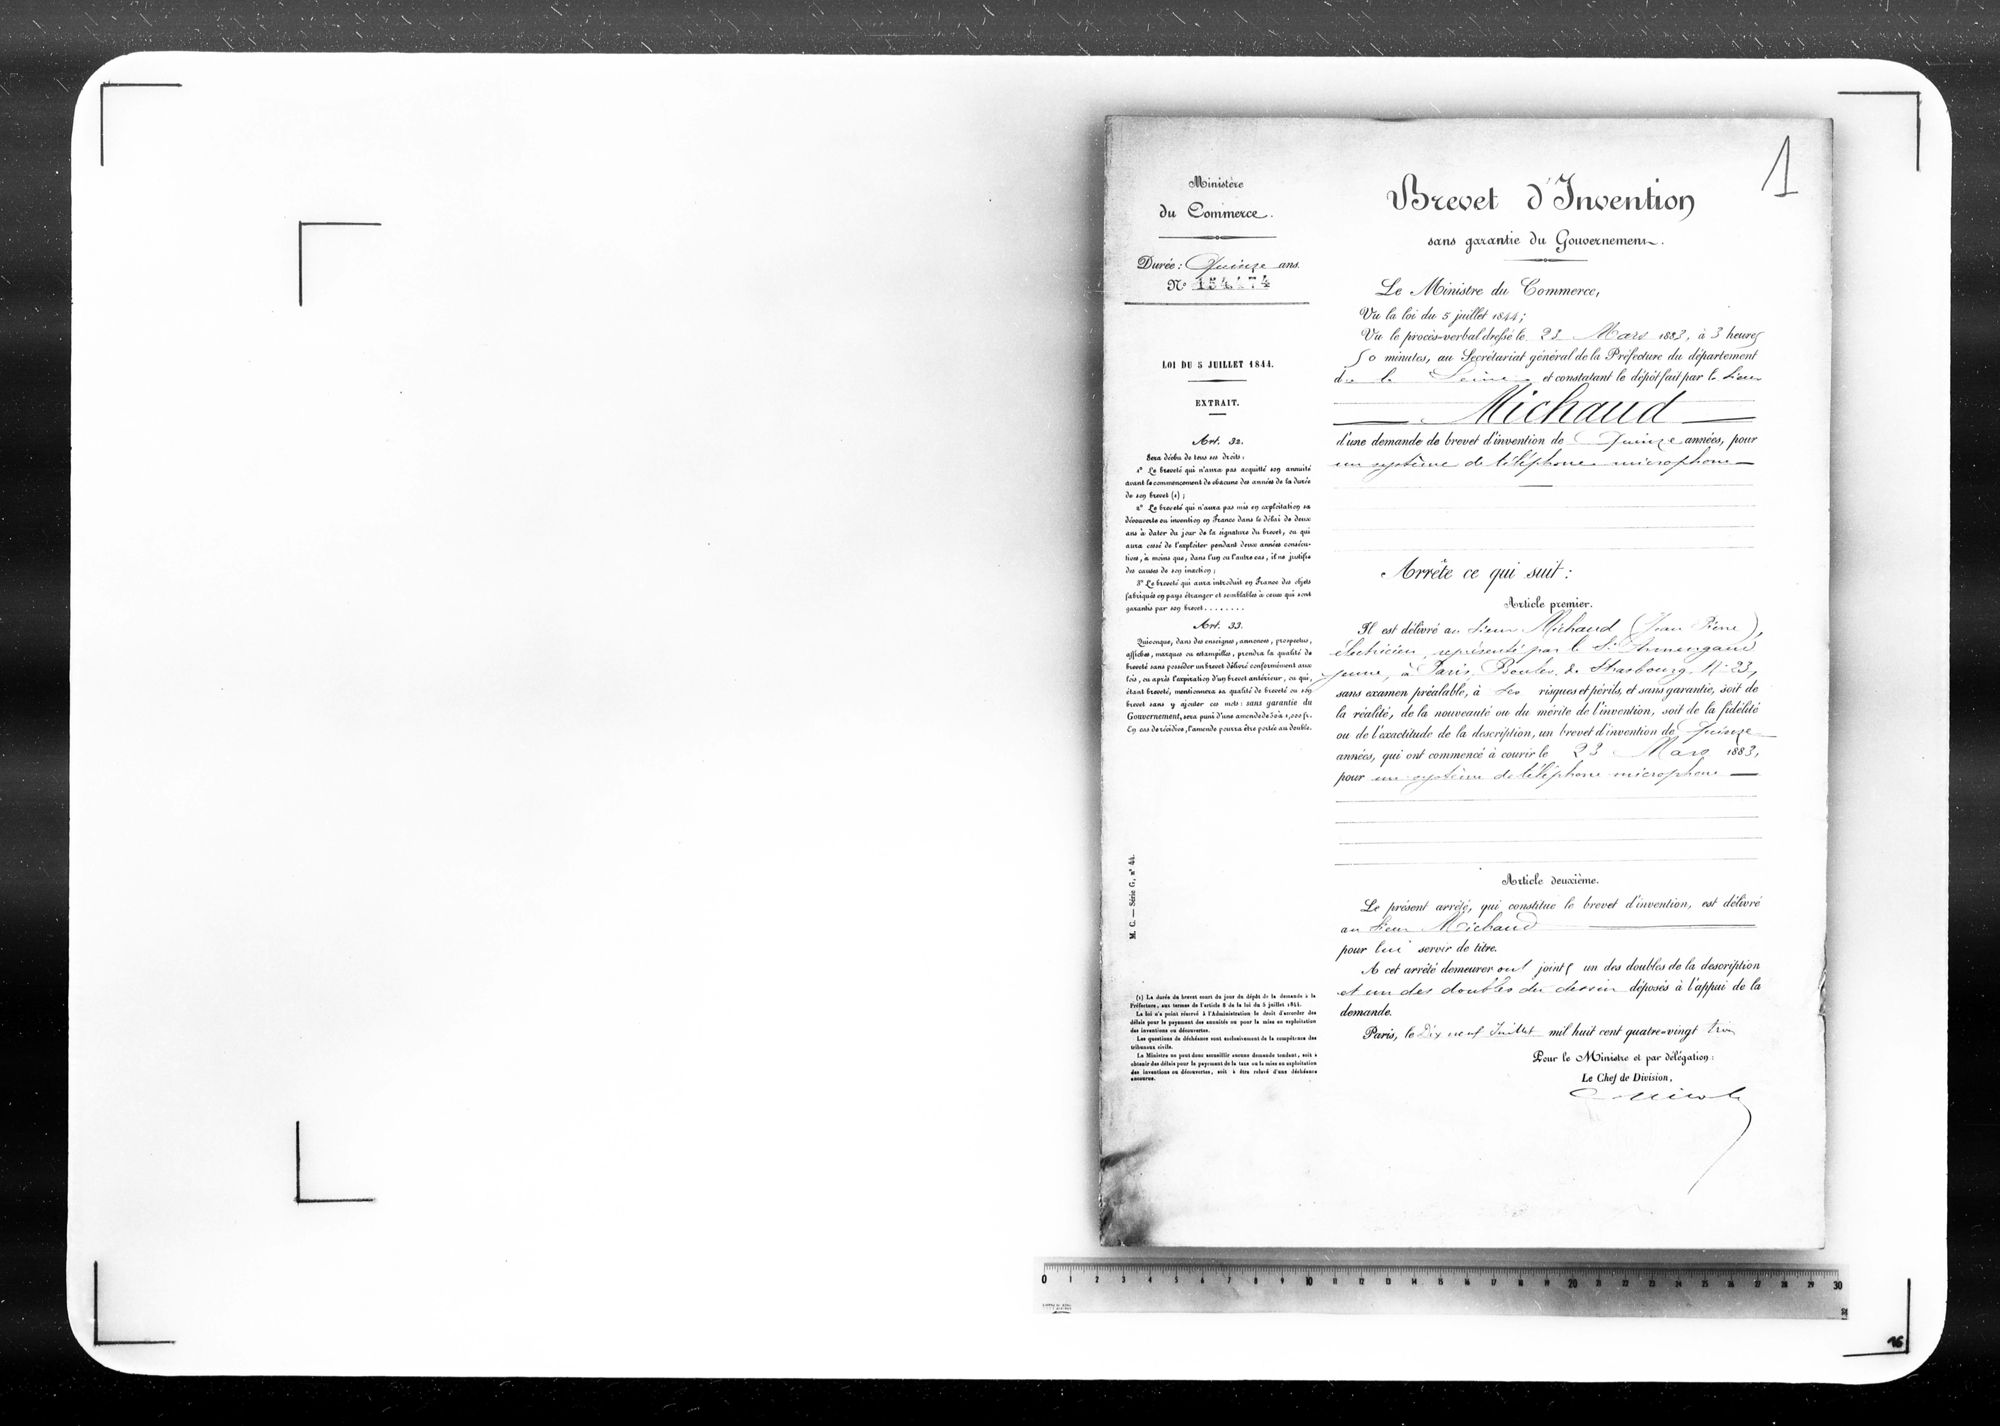 1
Ministère
du Commerce.
Durée : Quinze ans.
N° 154.474
LOI DU 5 JUILLET 1844.
EXTRAIT.
Art. 32.
Sera déchu de tous ses droits :
1° Le breveté qui n'aura pas acquitté son annuité
avant le commencement de chacune des années de la durée
de son brevet (1) ;
2° Le breveté qui n'aura pas mis en exploitation sa
découverte ou invention en France dans le délai de deux
ans à dater du jour de la signature du brevet, ou qui
aura cessé de l'exploiter pendant deux années consécu-
tives, à moins que, dans l'un ou l'autre cas, il ne justifie
des causes de son inaction ;
3° Le breveté qui aura introduit en France des objets
fabriqués en pays étranger et semblables à ceux qui sont
garantis par son brevet........
Art. 33.
Quiconque, dans des enseignes, annonces, prospectus,
affiches, marques ou estampilles, prendra la qualité de
breveté sans posséder un brevet délivré conformément aux
lois, ou après l'expiration d'un brevet antérieur, ou qui,
étant breveté, mentionnera sa qualité de breveté ou son
brevet sans y ajouter ces mots : sans garantie du
Gouvernement, sera puni d'une amende de 50 à 1,000 fr.
En cas de récidive, l'amende pourra être portée au double.
M. C. — Série G, n° 44.
(1) La durée du brevet court du jour du dépôt de la demande à la
Préfecture, aux termes de l'article 8 de la loi du 5 juillet 1844.
La loi n'a point réservé à l'Administration le droit d'accorder des
délais pour le payement des annuités ou pour la mise en exploitation
des inventions ou découvertes.
Les questions de déchéance sont exclusivement de la compétence des
tribunaux civils.
Le Ministre ne peut donc accueillir aucune demande tendant, soit à
obtenir des délais pour le payement de la taxe ou la mise en exploitation
des inventions ou découvertes, soit à être relevé d'une déchéance
encourue.
Brevet d'Invention
sans garantie du Gouvernement.
Le Ministre du Commerce,
Vu la loi du 5 juillet 1844 ;
Vu le procès-verbal dressé le 23 Mars 1883, à 3 heures
50 minutes, au Secrétariat général de la Préfecture du département
de la Seine et constatant le dépôt fait par le Sieur
Michaud
d'une demande de brevet d'invention de Quinze années, pour
un système de téléphone microphone
Arrête ce qui suit :
Article premier.
Il est délivré au Sieur Michaud (Jean Pierre),
électricien, représenté par le Sr. Armengaud
jeune, à Paris, Boulev. de Strasbourg, N° 23,
sans examen préalable, à ses risques et périls, et sans garantie, soit de
la réalité, de la nouveauté ou du mérite de l'invention, soit de la fidélité
ou de l'exactitude de la description, un brevet d'invention de Quinze
années, qui ont commencé à courir le 23 Mars 1883,
pour un système de téléphone microphone
Article deuxième.
Le présent arrêté, qui constitue le brevet d'invention, est délivré
au Sieur Michaud
pour lui servir de titre.
A cet arrêté demeureront joints un des doubles de la description
et un des doubles du dessin déposés à l'appui de la
demande.
Paris, le Dix neuf Juillet mil huit cent quatre-vingt trois
Pour le Ministre et par délégation :
Le Chef de Division,
0 1 2 3 4 5 6 7 8 9 10 11 12 13 14 15 16 17 18 19 20 21 22 23 24 25 26 27 28 29 30
16